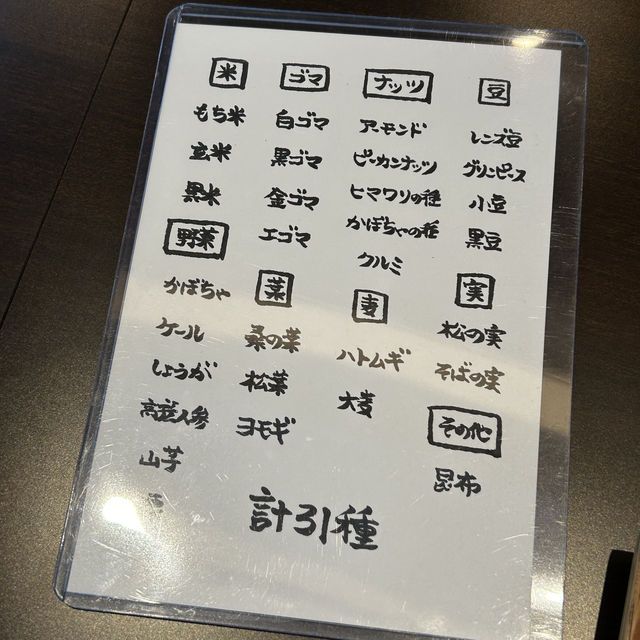 米
もち米
玄米
黒米
野菜
かぼちゃ
ケール
しょうが
高麗人参
山芋
ゴマ
白ゴマ
黒ゴマ
金ゴマ
エゴマ
葉
桑の葉
松葉
ヨモギ
ナッツ
アーモンド
ピーカンナッツ
ヒマワリの種
かぼちゃの種
クルミ
麦
ハトムギ
大麦
豆
レンズ豆
グリンピース
小豆
黒豆
実
松の実
そばの実
その他
昆布
計31種